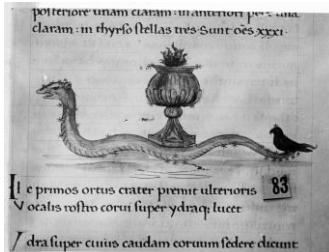 posteriore unam claram · in anteriori una
claram · in thyrso stellas tres · Sunt oēs xxxi ·
e primos ortus crater premit ulterioris
83
ocalis rostro corui super ydraq; lucet
dra super cuius caudam coruum sedere dicunt